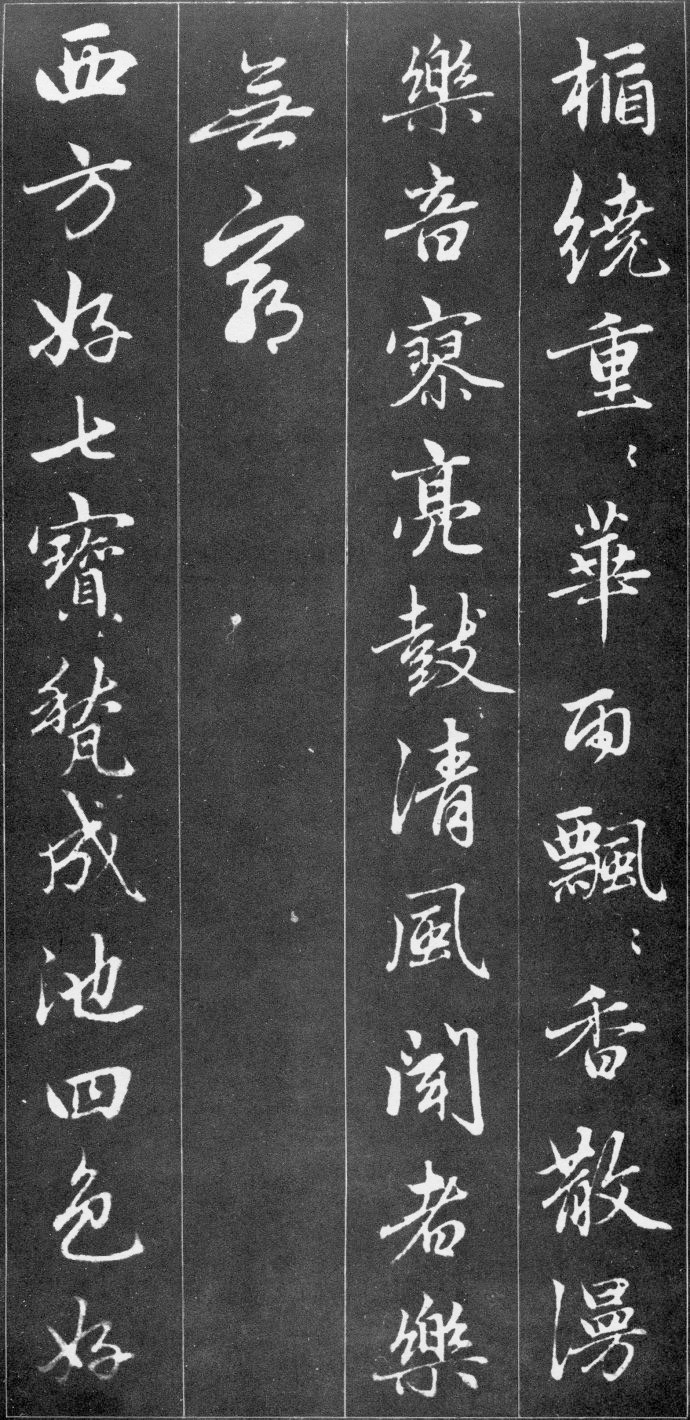 楯繞重〻華雨飄〻香散漫
樂音寥亮鼓清風聞者樂
無窮
西方好七寶甃成池四色好